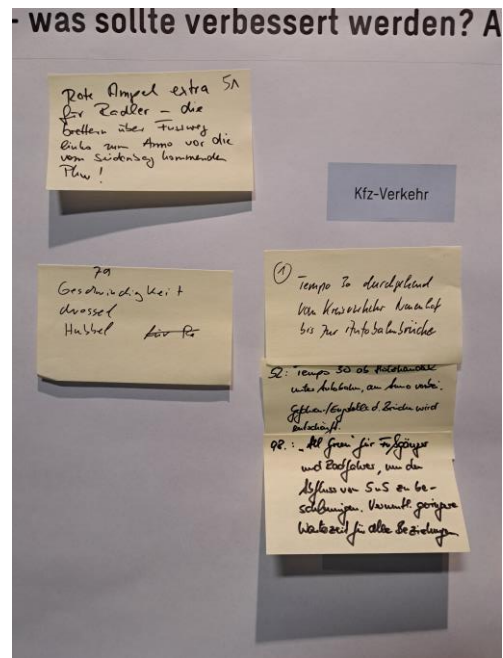 - was sollte verbessert werden? A
Rote Ampel extra 51
für Radler – die
brettern über Fussweg
links zum Anno vor die
vom Seidenberg kommenden
Pkw!
Kfz-Verkehr
79
Geschwindigkeit
drossel
Hubbel
① Tempo 30 durchgehend
von Kreisverkehr
bis zur Autobahnbrücke
52: Tempo 30 ab
unter Autobahn, am Anno vorbei.
Gefahren/Engstelle d. Brücke wird
entschärft.
98.: „All Green" für Fußgänger
und Radfahrer, um den
Abfluss von SuS zu be-
schleunigen. Vermutl. geringere
Wartezeit für alle Beziehungen